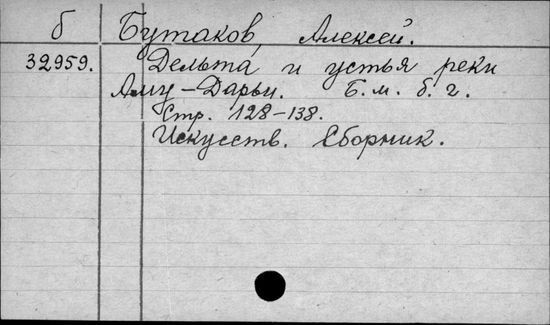 б Бутаков, Алексей.
32959. Дельта и устья реки
Аму-Дарьи. Б.м. б.г.
Стр. 128-138.
Искусств. Сборник.